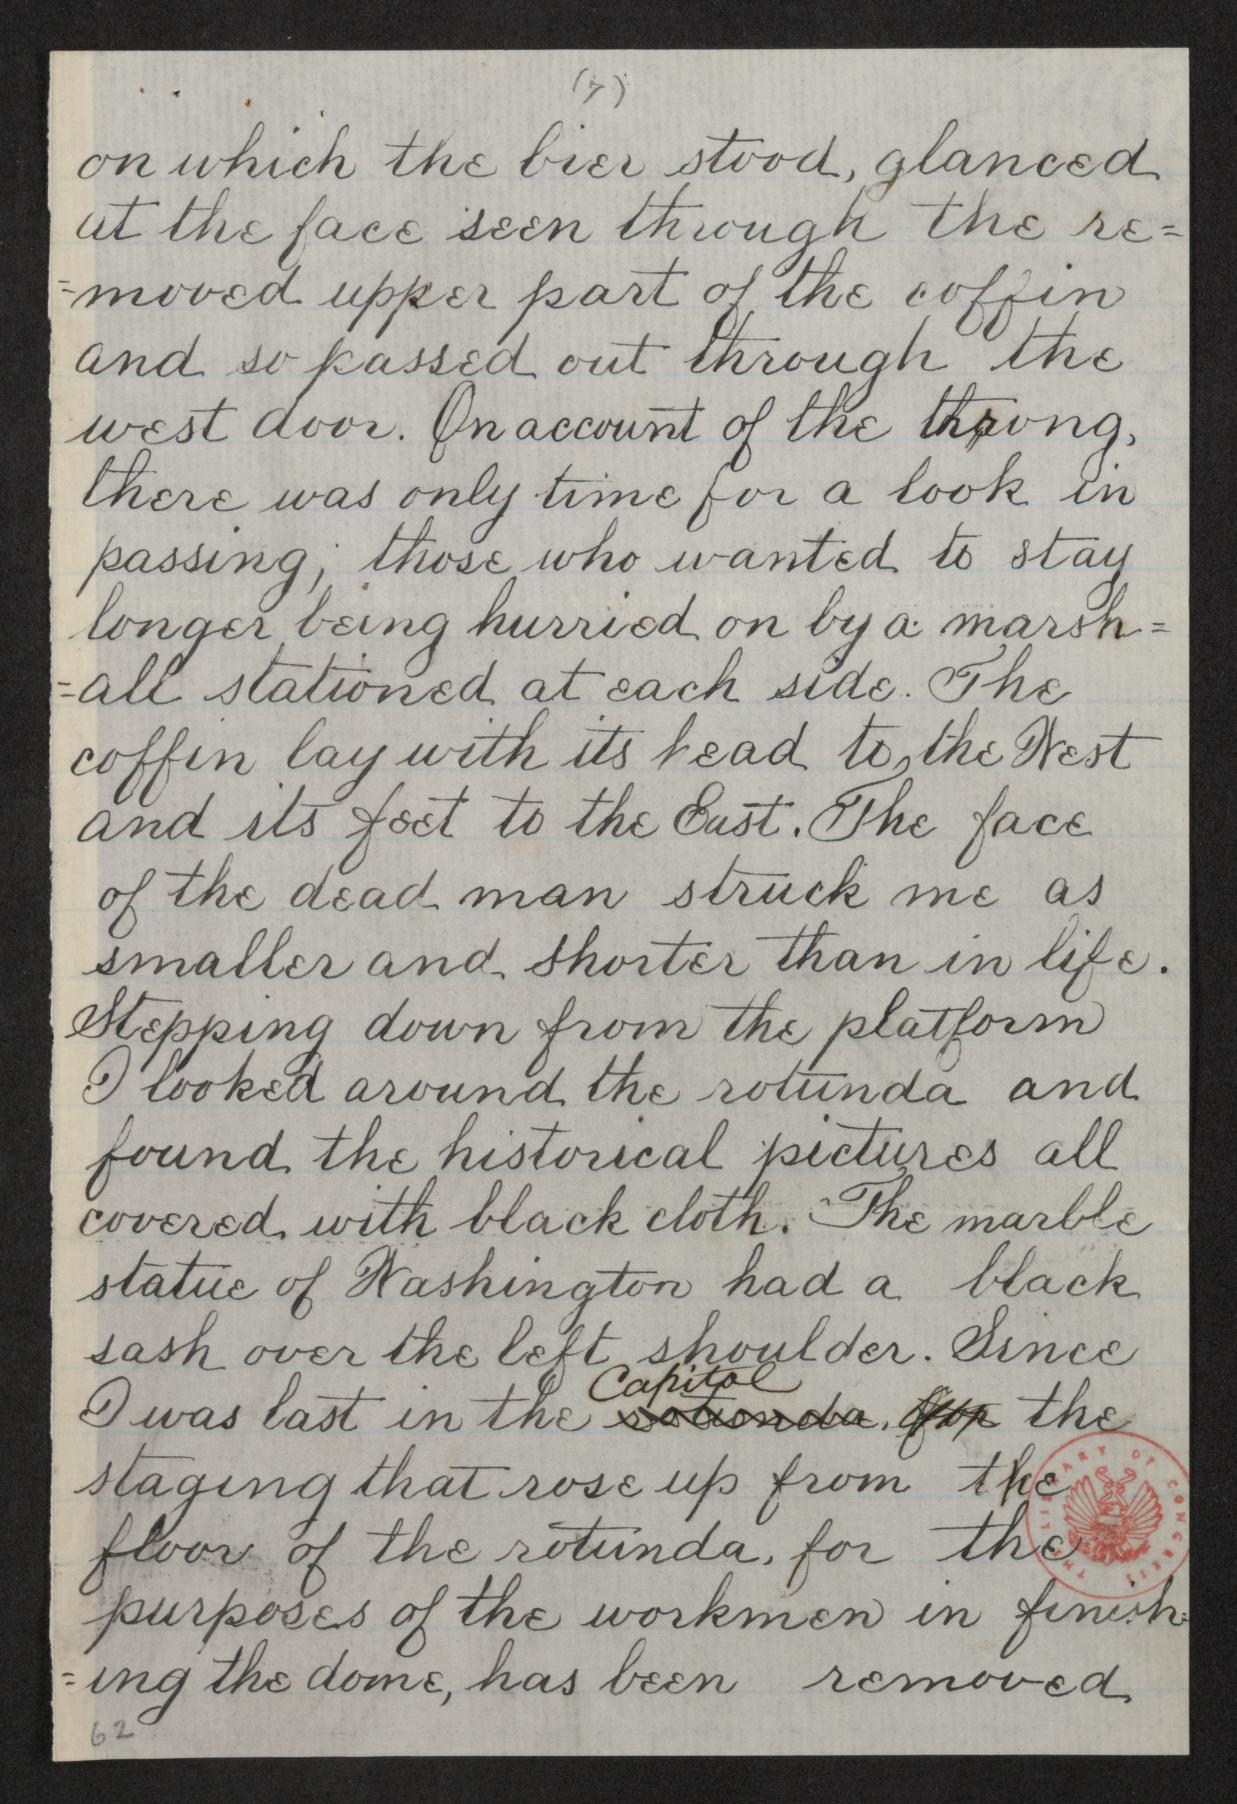 (7)
on which the bier stood, glanced
at the face seen through the re=
=moved upper part of the coffin
and so passed out through the
west door. On account of the throng,
there was only time for a look in
passing; those who wanted to stay
longer being hurried on by a marsh=
=all stationed at each side. The
coffin lay with its head to the West
and its feet to the East. The face
of the dead man struck me as
smaller and shorter than in life.
Stepping down from the platform
I looked around the rotunda and
found the historical pictures all
covered with black cloth. The marble
statue of Washington had a black
sash over the left shoulder. Since
Capitol
I was last in the rotunda, the
staging that rose up from the
floor of the rotunda, for the
purposes of the workmen in finish=
=ing the dome, has been removed.
62
THE LIBRARY OF CONGRESS